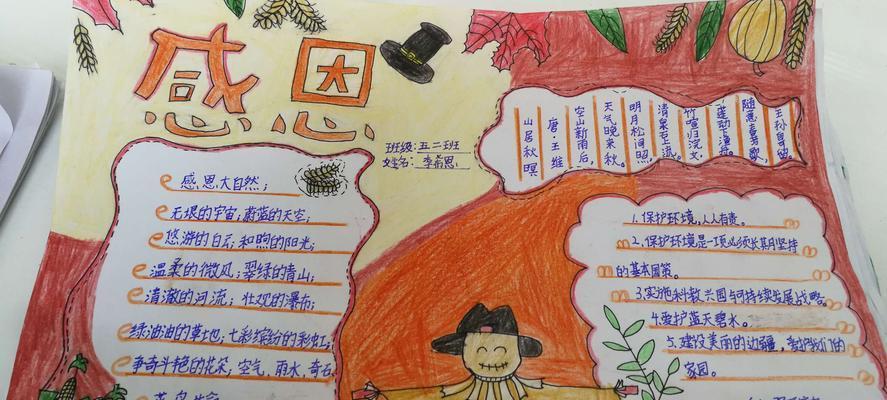 感恩
班级:五二班
姓名:李希恩
山居秋暝
唐·王维
空山新雨后,
天气晚来秋。
明月松间照,
清泉石上流。
竹喧归浣女,
莲动下渔舟。
随意春芳歇,
王孙自留。
感恩大自然;
无垠的宇宙;蔚蓝的天空;
悠游的白云;和煦的阳光;
温柔的微风;翠绿的青山;
清澈的河流;壮观的瀑布;
绿油油的草地;七彩缤纷的彩虹;
争奇斗艳的花朵;空气,雨水,奇石
1.保护环境,人人有责。
2.保护环境是一项必须长期坚持
的基本国策。
3.实施科教兴国与可持续发展战略。
4.爱护蓝天碧水。
5.建设美丽的边疆,爱护我们的
家园。